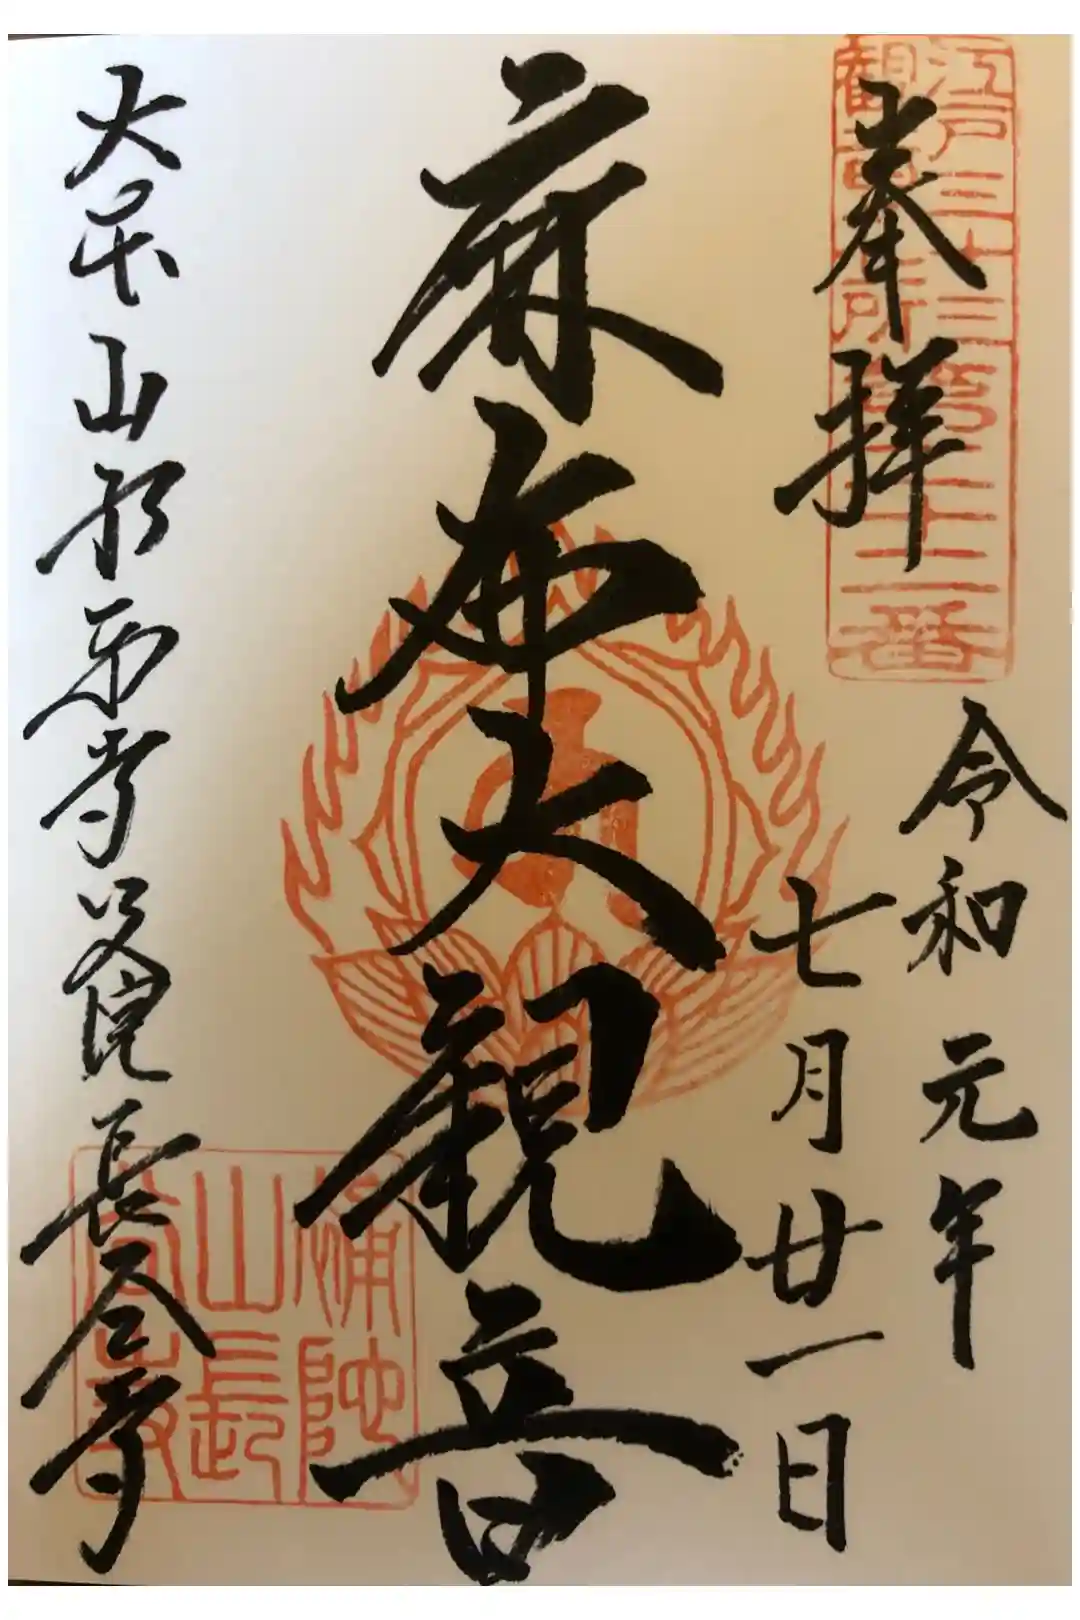 江戸三十三
観音札所第二十二番
奉拝
令和元年
七月廿一日
麻布大観音
大本山永平寺別院長谷寺
補陀
山長
谷寺